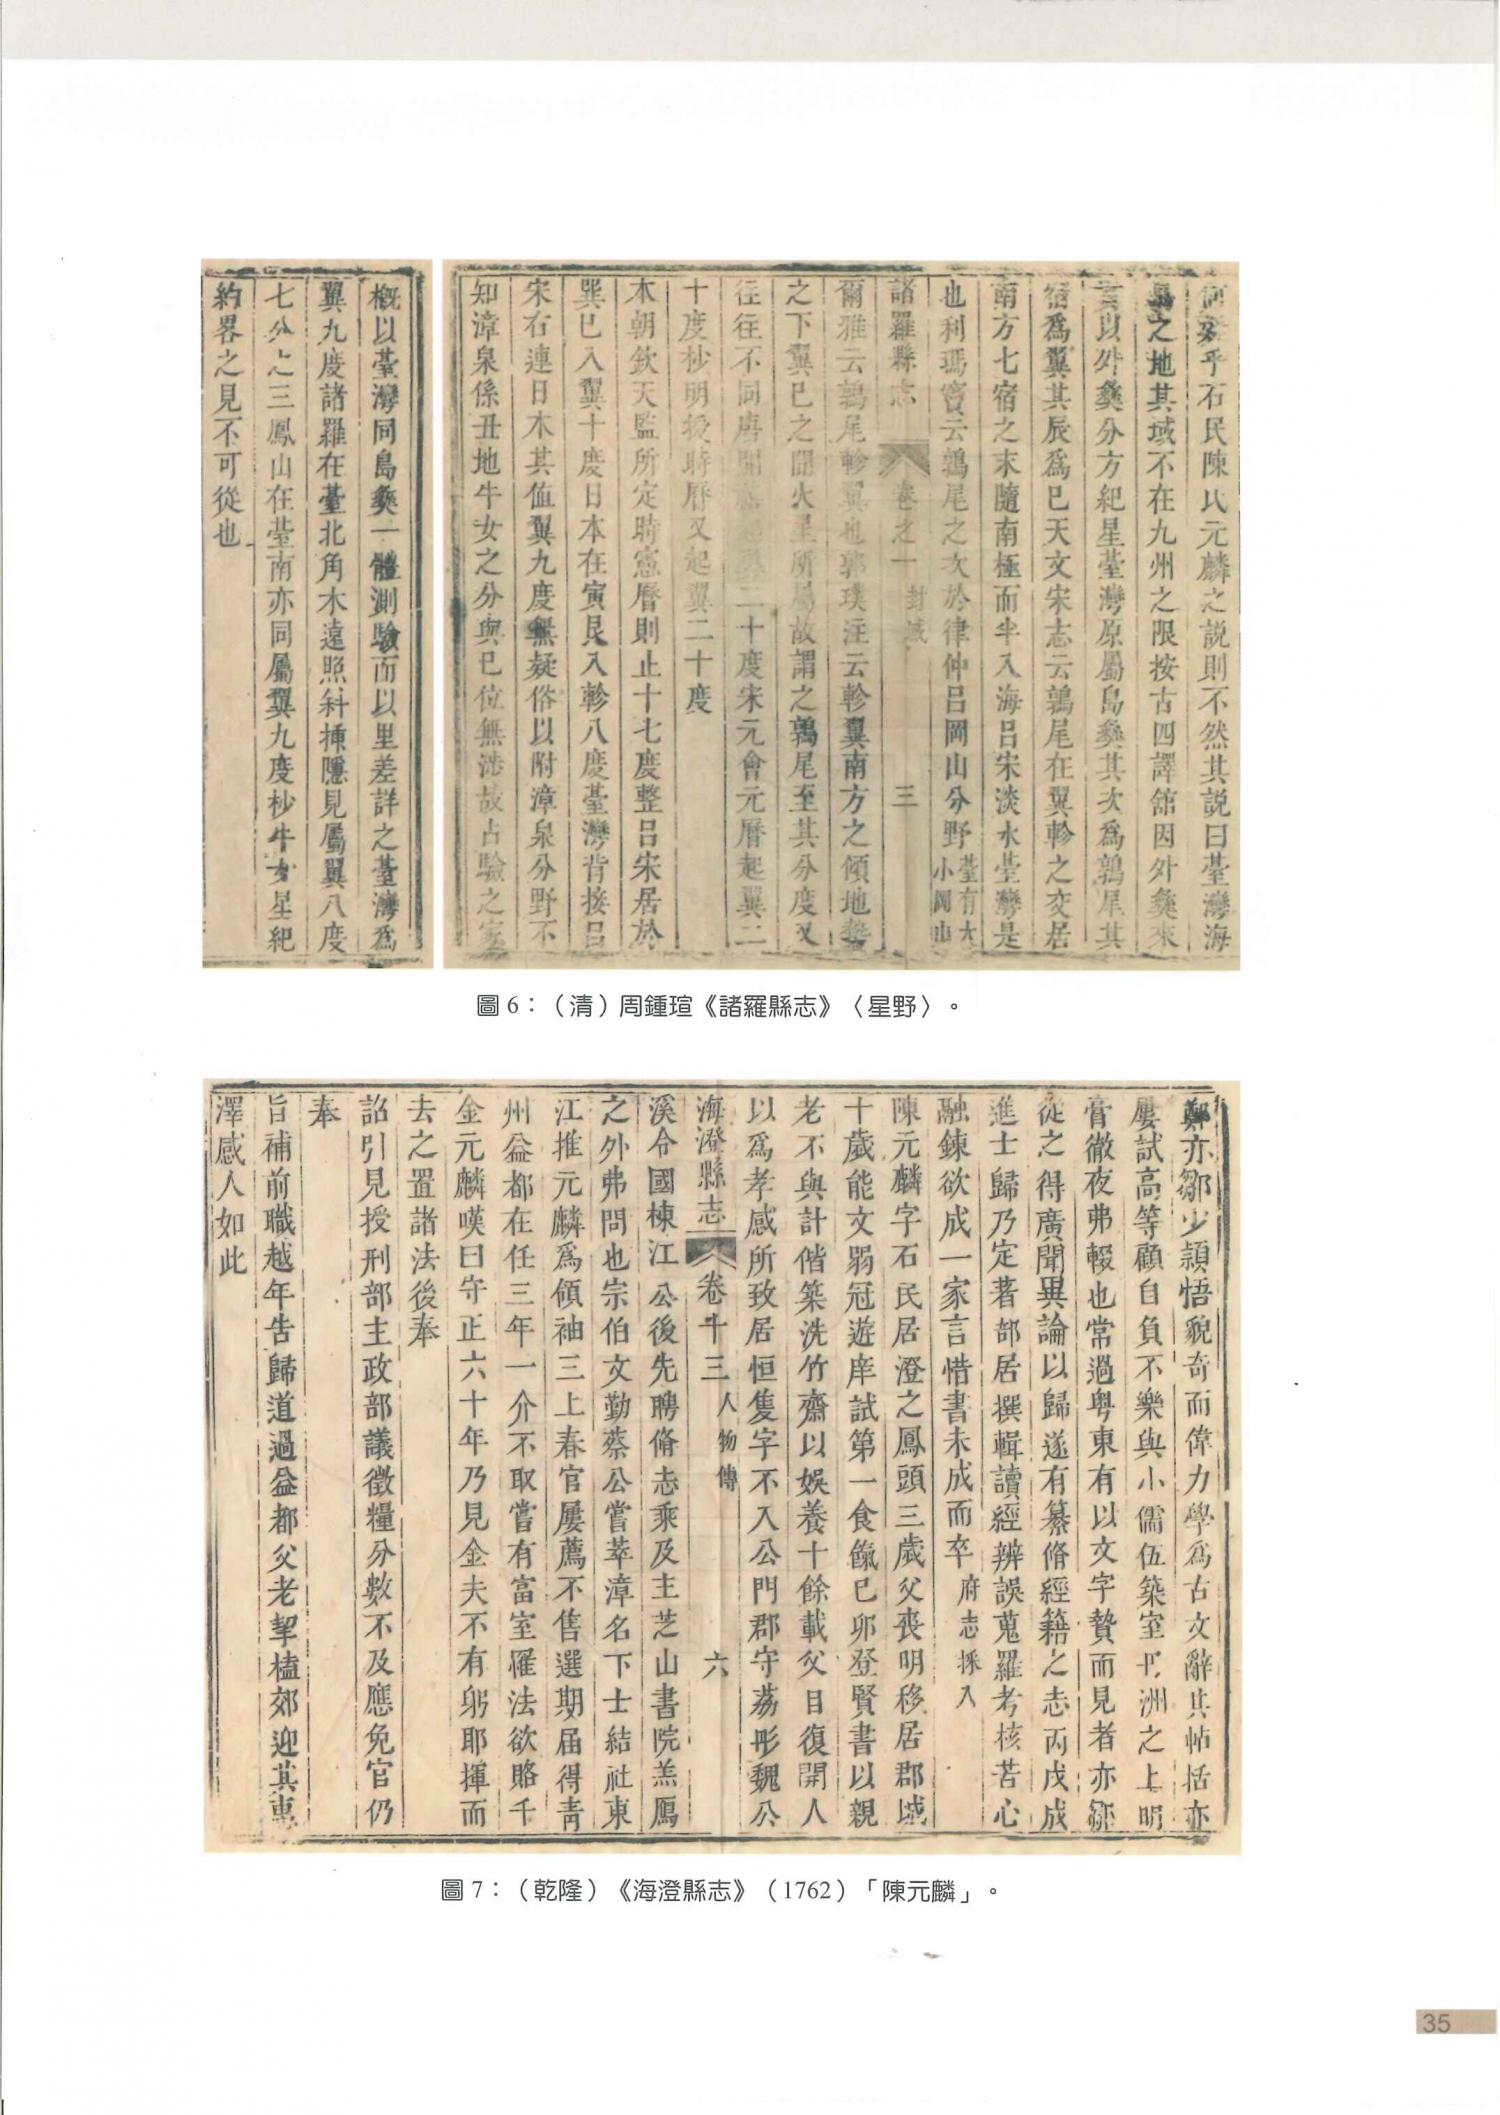 何疑乎石民陳氏元麟之説則不然其説曰臺灣海
之地其域不在九州之限按古四譯舘因外彝來
言以外彝分方紀星臺灣原屬島彝其次為鶉尾其
宿為翼其辰為巳天文宋志云鶉尾在翼軫之交居
南方七宿之末隨南極而半入海呂宋淡水臺灣是
也利瑪竇云鶉尾之次於律仲呂岡山分野臺有大小岡山
諸羅縣志 卷之一 封域 三
爾雅云鶉尾軫翼也郭璞注云軫翼南方之傾地
之下翼巳之開火星所屬故謂之鶉尾至其分度又
往往不同唐開 起翼二十度宋元會元曆起翼二
十度杪明授時曆又起翼二十度
本朝欽天監所定時憲曆則止十七度整呂宋居於
巽巳入翼十度日本在寅艮入軫八度臺灣背接呂
宋右連日木其值翼九度無疑俗以附漳泉分野不
知漳泉係丑地牛女之分與巳位無涉故占驗之家
概以臺灣同島彝一體測驗而以里差詳之臺灣為
翼九度諸羅在臺北角木遠照斜揀隱見屬翼八度
七分之三鳳山在臺南亦同屬翼九度杪牛女星紀
約畧之見不可從也
圖6：（清）周鍾瑄《諸羅縣志》〈星野〉。
鄭亦鄒少頴悟貌奇而偉力學為古文辭其帖括亦
屢試高等顧自負不樂與小儒伍築室 洲之上明
膏徹夜弗輟也常過粤東有以文字贄而見者亦鄒
從之得廣聞異論以歸遂有纂脩經籍之志丙戌成
進士歸乃定著部居撰輯讀經辨誤蒐羅考核苦心
融鍊欲成一家言惜書未成而卒 府志採入
陳元麟字石民居澄之鳳頭三歲父喪明移居郡城
十歲能文弱冠遊庠試第一食餼巳卯登賢書以親
老不與計偕築洗竹齋以娛養十餘載父目復開人
以為孝感所致居恒隻字不入公門郡守荔彤魏公
海澄縣志 卷十三 人物傳 六
溪令國棟江公後先聘脩志乘及主芝山書院羔鴈
之外弗問也宗伯文勤蔡公嘗萃漳名下士結社東
江推元麟為領袖三上春官屢薦不售選期届得青
州益都在任三年一介不取嘗有富室罹法欲賂千
金元麟嘆曰守正六十年乃見金夫不有躬耶揮而
去之置諸法後奉
詔引見授刑部主政部議徵糧分數不及應免官仍
奉
旨補前職越年告歸道過益都父老挈榼郊迎其惠
澤感人如此
圖7：（乾隆）《海澄縣志》（1762）「陳元麟」。
35